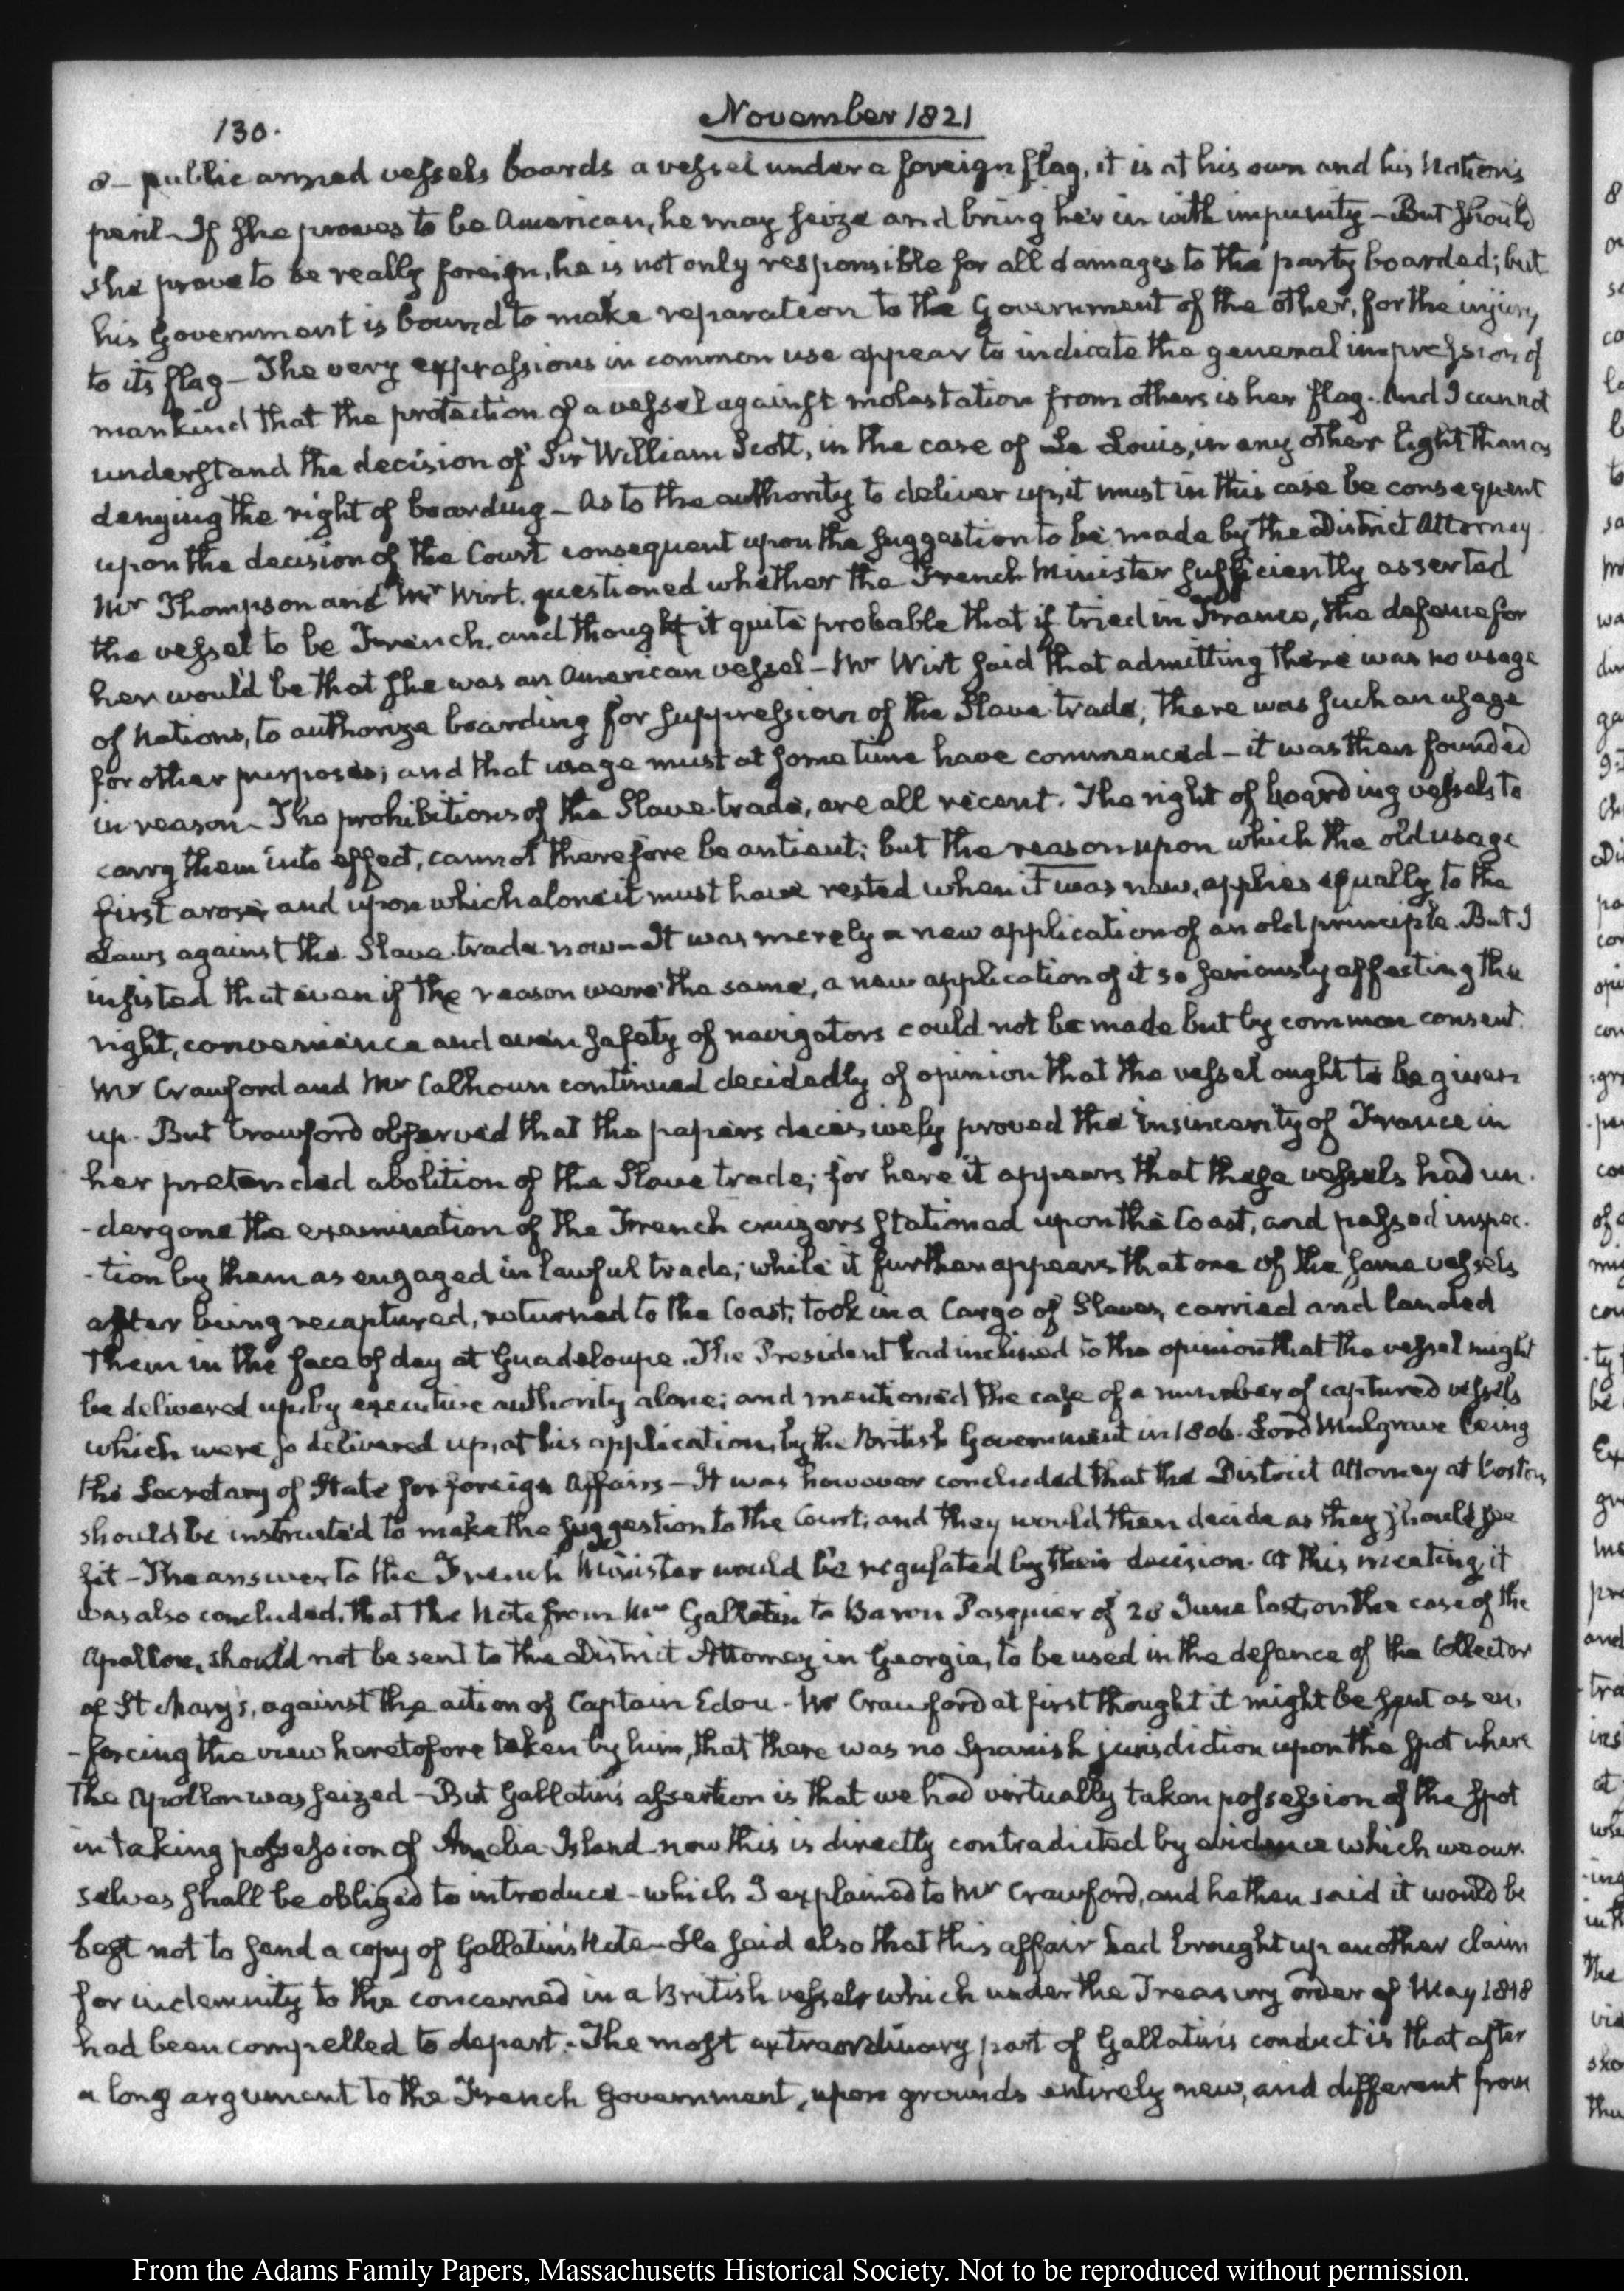 130.
November 1821
8 — public armed vessels boards a vessel under a foreign flag, it is at his own and his Nation's
peril — If she proves to be American, he may seize and bring her in with impunity — But should
she prove to be really foreign, he is not only responsible for all damages to the party boarded; but
his Government is bound to make reparation to the Government of the other, for the injury
to its flag — The very expressions in common use appear to indicate the general impression of
mankind that the protection of a vessel against molestation from others is her flag. And I cannot
understand the decision of Sir William Scott, in the case of Le Louis, in any other light than as
denying the right of boarding — As to the authority to deliver up, it must in this case be consequent
upon the decision of the Court consequent upon the suggestion to be made by the District Attorney
Mr Thompson and Mr Wirt, questioned whether the French Minister sufficiently asserted
the vessel to be French, and thought it quite probable that if tried in France, the defence for
her would be that she was an American vessel — Mr Wirt said that admitting there was no usage
of Nations, to authorize boarding for suppression of the Slave trade; there was such an usage
for other purposes; and that usage must at some time have commenced — it was then founded
in reason — The prohibitions of the Slave-trade, are all recent. The right of boarding vessels to
carry them into effect, cannot therefore be antient; but the reason upon which the old usage
first arose, and upon which alone it must have rested when it was new, applies equally to the
Laws against the Slave-trade now — It was merely a new application of an old principle. But I
insisted that even if the reason were the same, a new application of it so seriously affecting the
right, convenience and even safety of navigators could not be made but by common consent.
Mr Crawford and Mr Calhoun continued decidedly of opinion that the vessel ought to be given
up. But Crawford observed that the papers decisively proved the insincerity of France in
her pretended abolition of the Slave trade; for here it appears that these vessels had un-
-dergone the examination of the French cruizers stationed upon the Coast, and passed inspec-
-tion by them as engaged in lawful trade; while it further appears that one of the same vessels
after being recaptured, returned to the Coast, took in a Cargo of Slaves, carried and landed
them in the face of day at Guadeloupe. The President had inclined to the opinion that the vessel might
be delivered up by executive authority alone; and mentioned the case of a number of captured vessels
which were so delivered up, at his application, by the British Government in 1806. Lord Mulgrave being
the Secretary of State for foreign Affairs — It was however concluded that the District Attorney at Boston,
should be instructed to make the suggestion to the Court; and they would then decide as they should see
fit — The answer to the French Minister would be regulated by their decision. At this meeting it
was also concluded, that the Note from Mr Gallatin to Baron Pasquier of 28 June last, on the case of the
Apollon, should not be sent to the District Attorney in Georgia, to be used in the defence of the Collector
of St Mary's, against the action of Captain Edou — Mr Crawford at first thought it might be sent as en-
-forcing the view heretofore taken by him, that there was no Spanish jurisdiction upon the spot where
the Apollon was seized — But Gallatin's assertion is that we had virtually taken possession of the spot
in taking possession of Amelia Island — now this is directly contradicted by evidence which we our-
selves shall be obliged to introduce — which I explained to Mr Crawford, and he then said it would be
best not to send a copy of Gallatin's Note — He said also that this affair had brought up another claim
for indemnity to the concerned in a British vessels which under the Treasury order of May 1818
had been compelled to depart. — The most extraordinary part of Gallatin's conduct is that after
a long argument to the French Government, upon grounds entirely new, and different from
From the Adams Family Papers, Massachusetts Historical Society. Not to be reproduced without permission.